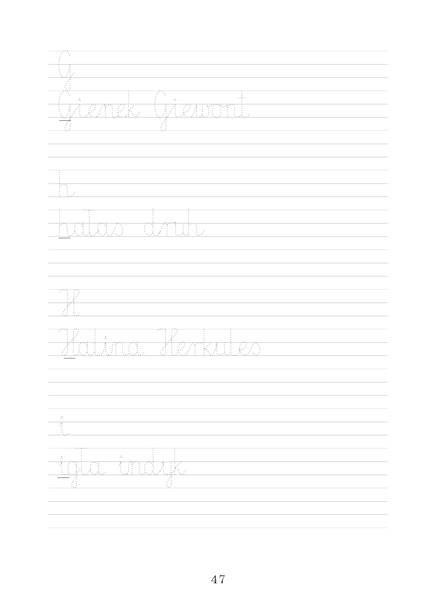 G
Gienek Giewont
h
hałas druh
H
Halina Herkules
i
igła indyk
47